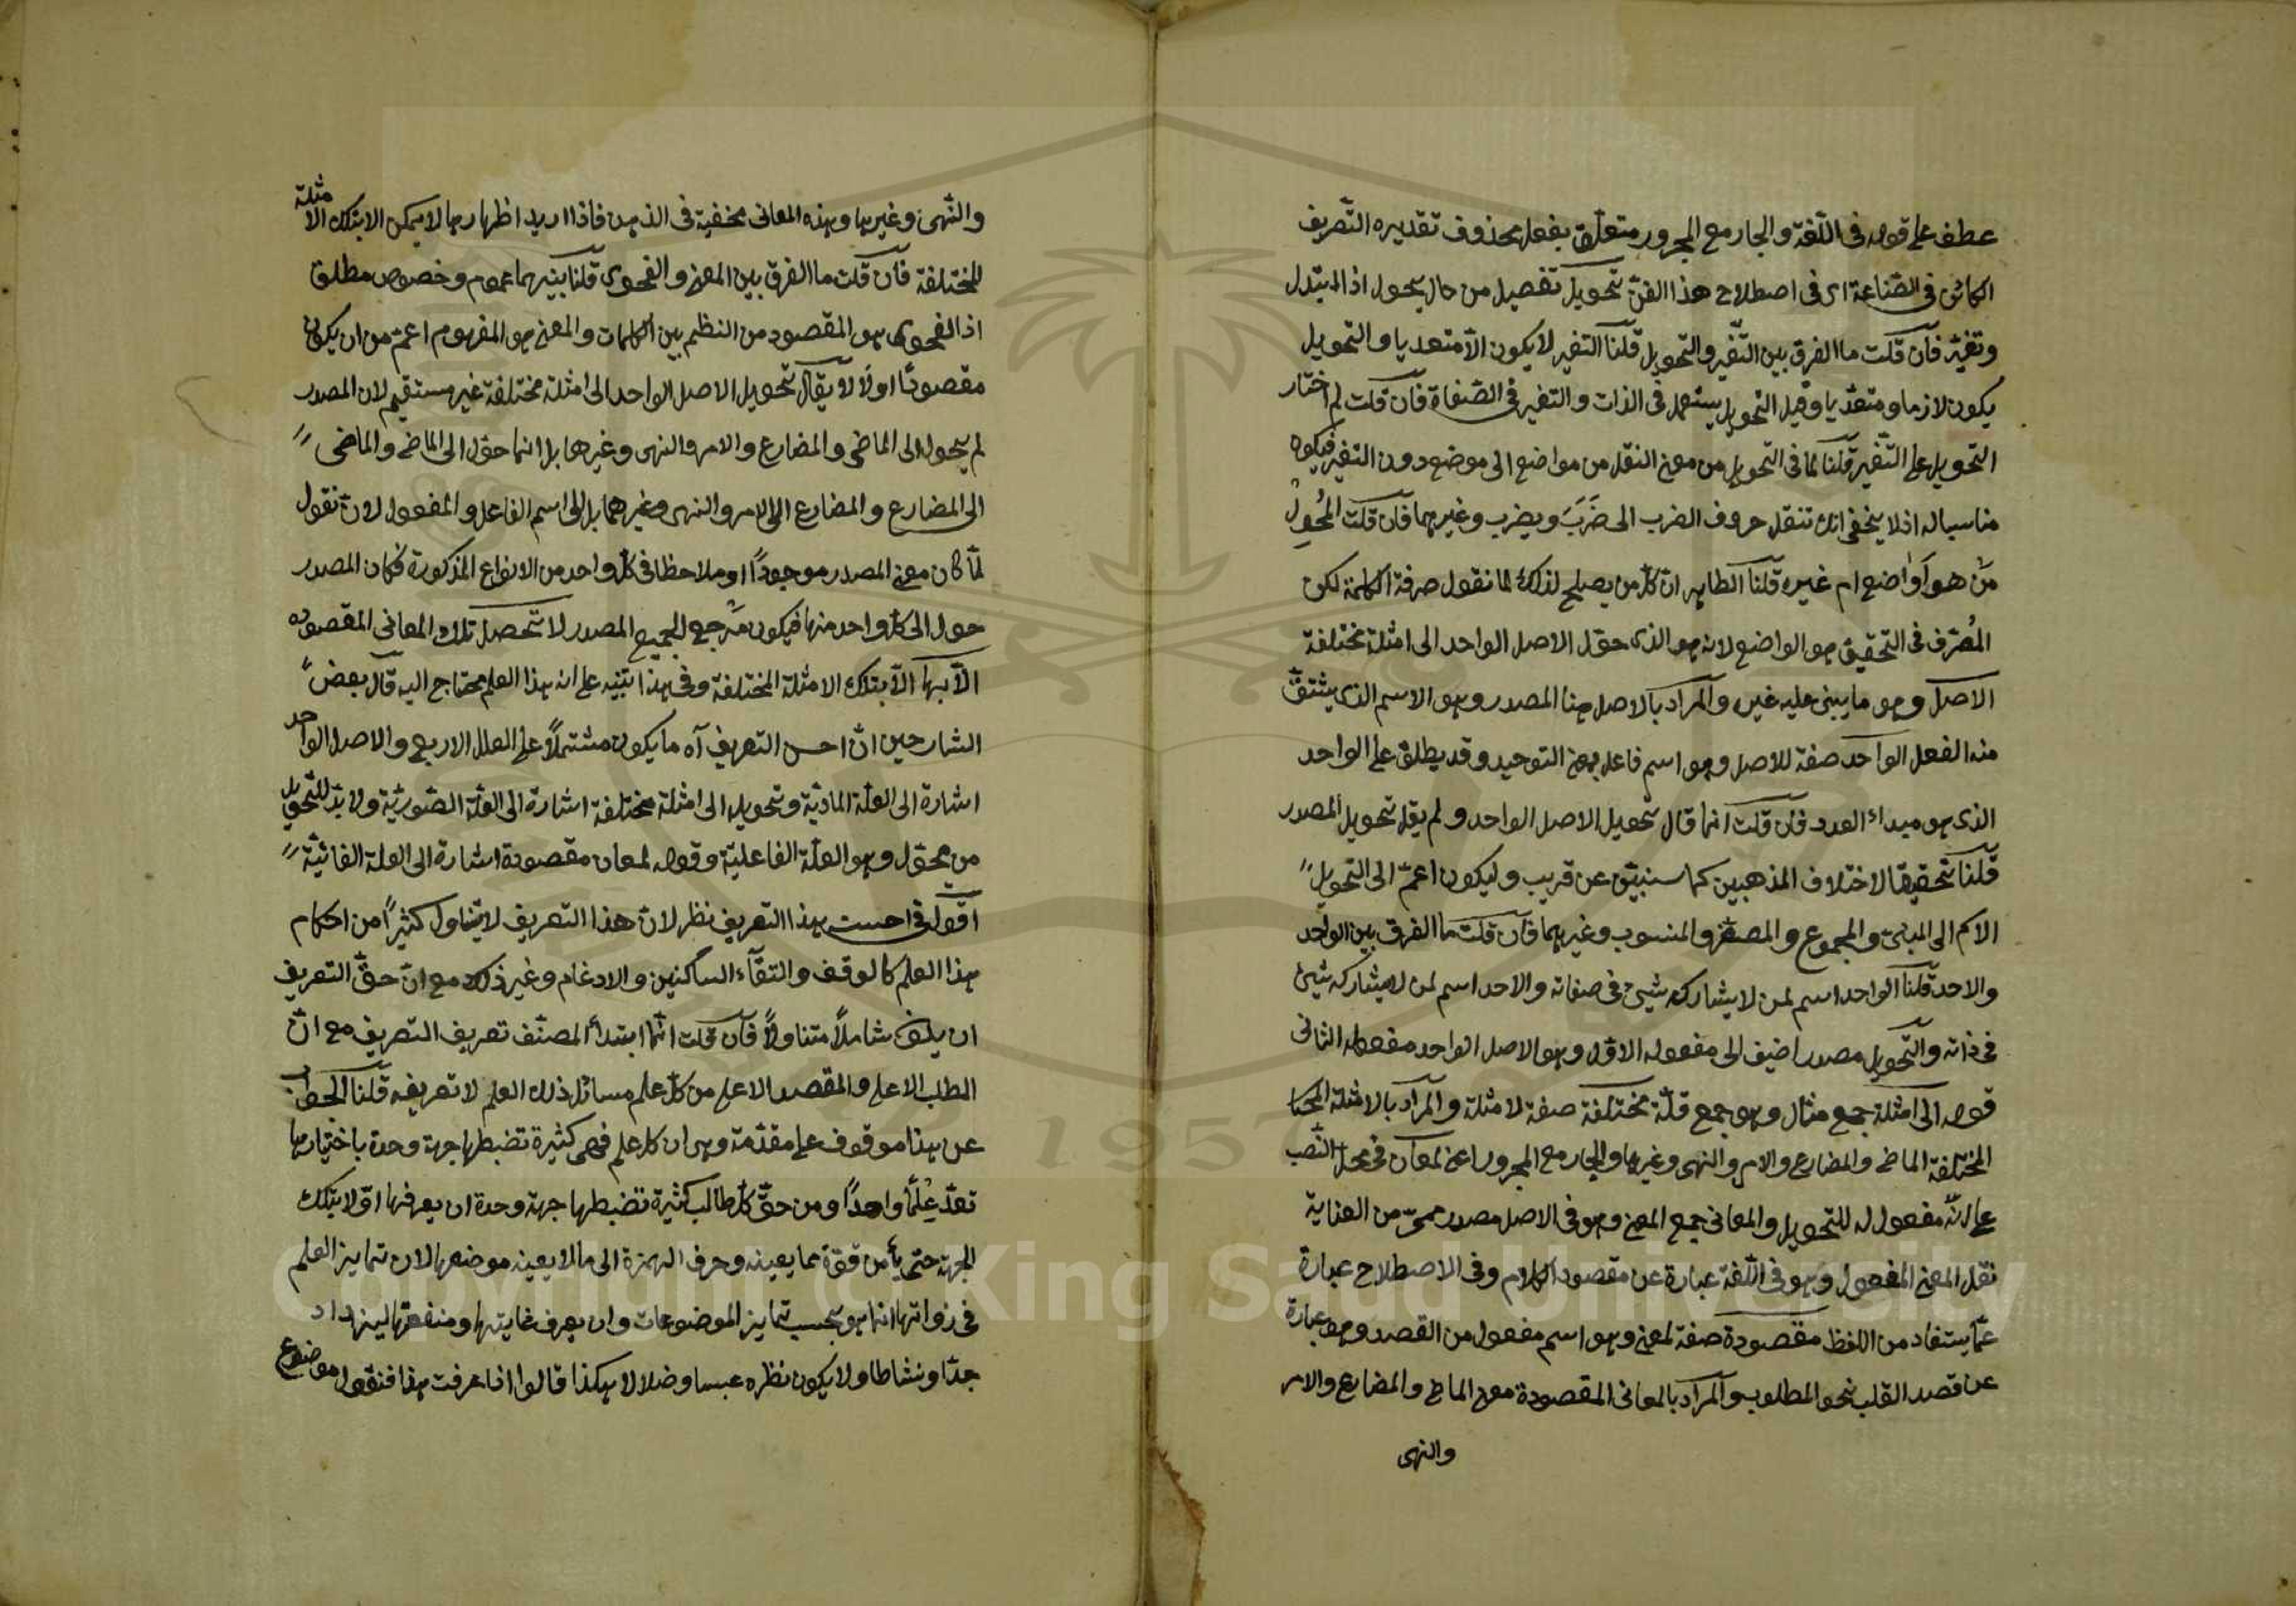 عطف على قوله فى اللّغة والجار مع المجرور متعلّق بفعل محذوف تقديره التّصريف
الكائن فى الصّناعة اى فى اصطلاح هذا الفنّ تحويل تفصيل من حال يحول اذا ابتدل
وتغيّر فان قلت ما الفرق بين التّغير والتّحويل قلنا التغير لا يكون الاّ متعديا والتحويل
يكون لازما ومتعدّيا وقيل التّحويل يستعمل فى الذات والتغير فى الصّفاة فان قلت لم اختار
التحويل على التّغير قلنا لما فى التحويل من معنى النقل من مواضع الى موضع دون التغير فيكون
مناسبا له اذ لا يخفى انك تنقل حروف الضرب الى ضَرَبَ ويضرب وغيرهما فان قلت المُحوِلُ
مَن هو آواضع ام غيره قلنا الظاهر انّ كل من يصلح لذلك لما نقول صرفة الكلمة لكن
المُصرّف فى التحقيق هو الواضع لانه هو الذى حوّل الاصل الواحد الى امثلة مختلفة
الاصل وهو ما يبنى عليه غيره والمراد بالاصل هنا المصدر وهو الاسم الذى يشتقّ
منه الفعل الواحد صفة للاصل وهو اسم فاعل بمعنى التوحيد وقد يطلق على الواحد
الذى هو مبداء العدد فان قلت انما قال تحويل الاصل الواحد ولم يقل تحويل المصدر
قلنا تحقيقا لاختلاف المذهبين كما سنبيّن عن قريب وليكون اعمّ الى التحويل
الاسم الى المبنى والمجموع والمصغر والمنسوب وغيرهما فان قلت ما الفرق بين الواحد
والاحد قلنا الواحد اسم لمن لا يشاركه شيئ فى صفاته والاحد اسم لمن لا يشاركه شيئ
فى ذاته والتّحويل مصدر اضيف الى مفعوله الاوّل وهو الاصل الواحد مفعوله الثانى
قوله الى امثلة جمع مثال وهو جمع قلّة مختلفة صفة لامثلة والمراد بالامثلة
المختلفة الماضى والمضارع والامر والنهى وغيرها والجار مع المجرور اعنى لمعان فى محل النّصب
على انّه مفعول له للتحويل والمعانى جمع المعنى وهو فى الاصل مصدر ميمىّ من العناية
نقل المعنى المفعول وهو فى اللّغة عبارة عن مقصود الكلام وفى الاصطلاح عبارة
عمّا يستفاد من اللفظ مقصودة صفة لمعنى وهو اسم مفعول من القصد وهو عبارة
عن قصد القلب نحو المطلوب والمراد بالمعانى المقصودة معنى الماضى والمضارع والامر
والنهى
والنّهى وغيرها وهذه المعانى مخفية فى الذهن فاذا اريد اظهارها لا يمكن الا بتلك الامثلة
المختلفة فان قلت ما الفرق بين المعنى والفحوى قلنا بينهما عموم وخصوص مطلق
اذ الفحوى هو المقصود من النظم بين الكلمات والمعنى هو المفهوم اعمّ من ان يكون
مقصودًا اولاً لا يقال تحويل الاصل الواحد الى امثلة مختلفة غير مستقيم لان المصدر
لم يحول الى الماضى والمضارع والامر والنهى وغيرها بل انما حوّل الى الماضى والماضى
الى المضارع والمضارع الى الامر والنهى وغيرهما بل الى اسم الفاعل والمفعول لانّ نقول
لمّا كان معنى المصدر موجودًا او ملاحظا فى كل واحد من الانواع المذكورة فكان المصدر
حول الى كل واحد منها فيكون مَرجع الجميع المصدر لا تحصل تلك المعانى المقصوده
الاّ بها الاّ بتلك الامثلة المختلفة وفى هذا تنبيه على ان هذا العلم محتاج اليه قال بعض
الشارحين انّ احسن التعريف آه ما يكون مشتملاً على العلل الاربع والاصل الواحد
اشارة الى العلّة الماديّة وتحويله الى امثلة مختلفة اشارة الى العلّة الصّوريّة ولا بدّ للتّحويل
من محوّل وهو العلّة الفاعليّة وقوله لمعان مقصودة اشارة الى العلة الغائيّة
اقول فى احسنـ هذا التعريف نظر لانّ هذا التعريف لا يتناول كثيرًا من احكام
هذا العلم كالوقف والتقاء الساكنين والادغام وغير ذلك مع انّ حقّ التعريف
ان يكون شاملاً متناولاً فان قلت انّما ابتدأ المصنّف تعريف التصريف مع انّ
الطلب الاعلى والمقصد الاعلى من كل علم مسائل ذلك العلم لا تعريفه قلنا الجواب
عن هذا موقوف على مقدّمة وهى ان كل علم فهى كثيرة تضبطها جهة وحدة باختيارها
تعدّ عِلمًا واحدًا ومن حقّ كل طالب كثيرة تضبطها جهة وحدة ان يعرفها اوّلا بتلك
الجهة حتى يأمن قوّة عما يعينه وحرف الهمزة الى ما لا يعينه موضعها لان تمايز العلم
فى ذواتها انما هو بحسب تمايز الموضوعات وان يعرف غايتها ومنفعتها ليزداد
جدّا ونشاطا ولا يكون نظره عبسا وضلالا هكذا قالوا اذا عرفت هذا فنقول موضوع